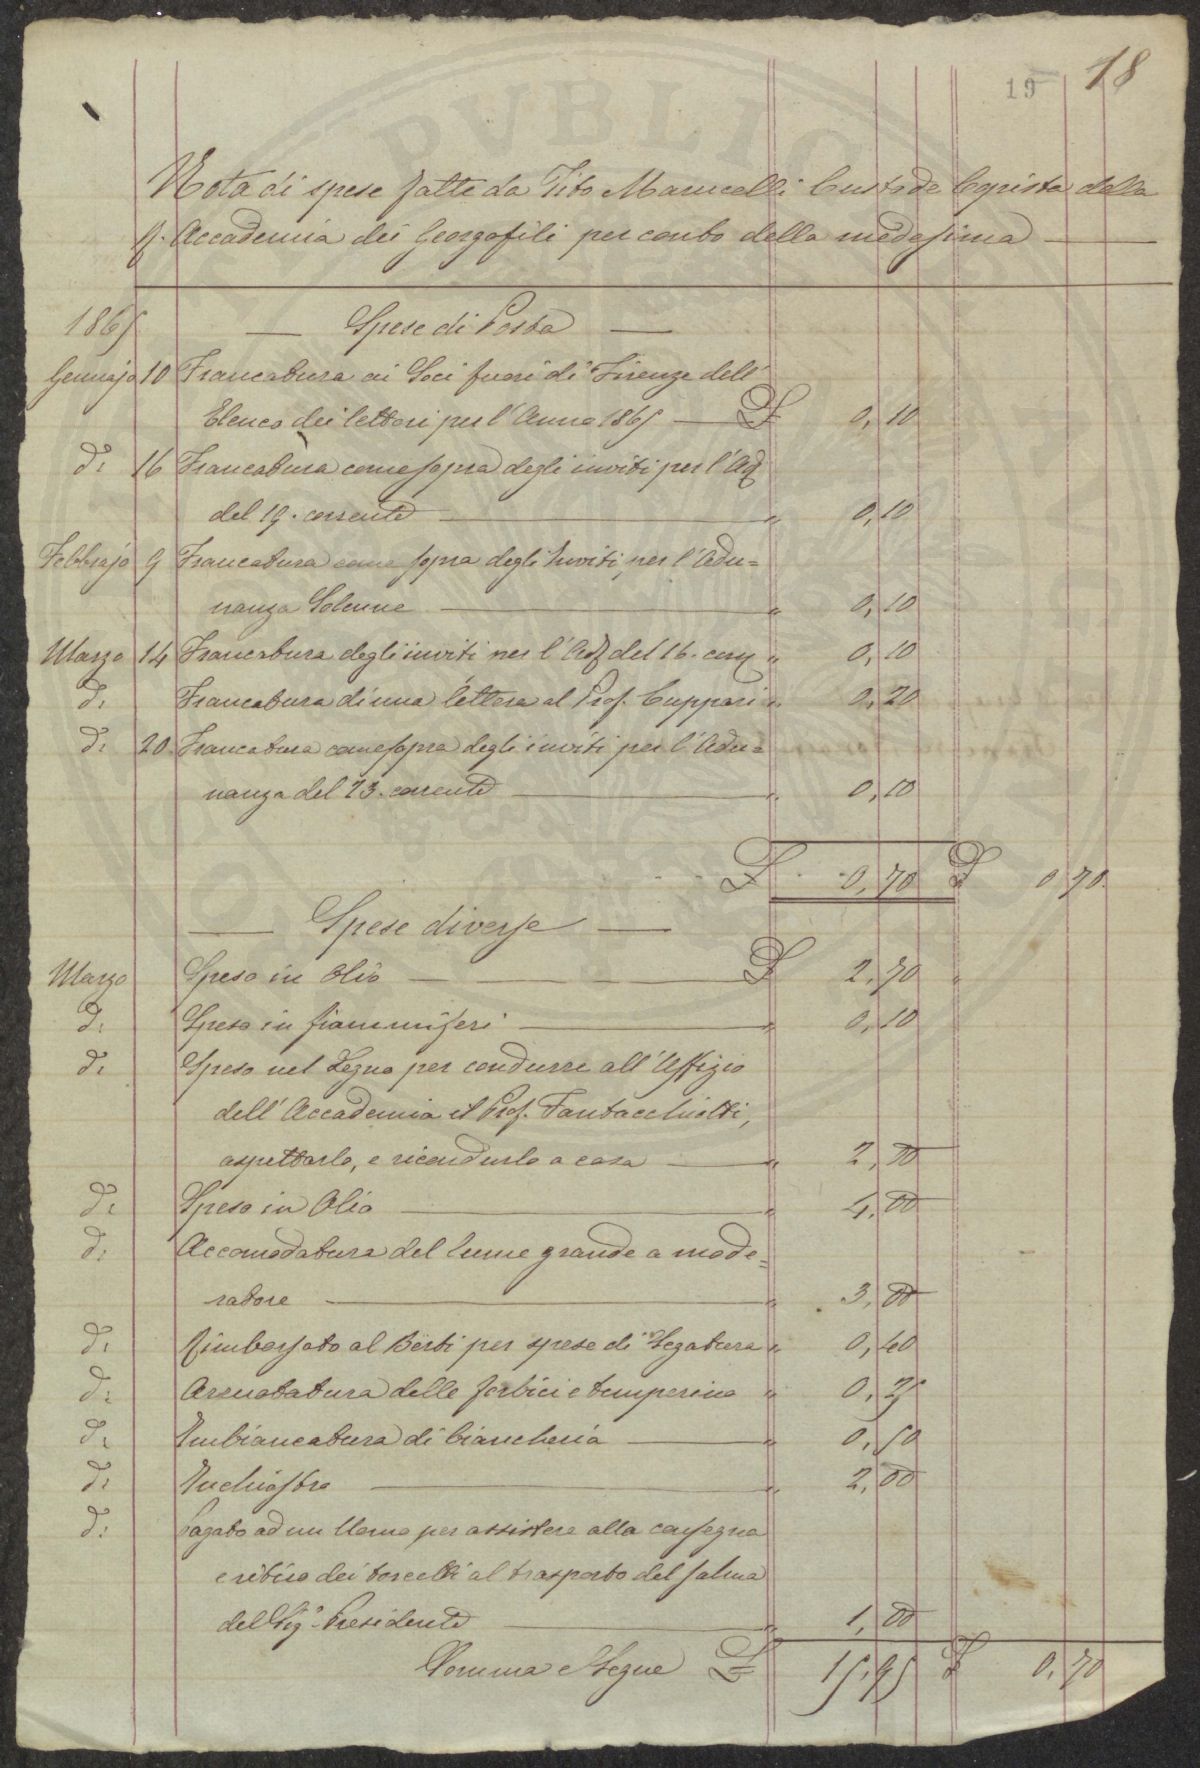 19 18
Nota di spese fatte da Tito Marucelli Custode Copista della
R. Accademia dei Georgofili per conto della medesima
1865 Spese di Posta
Gennajo 10 Francatura ai Soci fuori di Firenze dell'
Elenco dei lettori per l'Anno 1865 £ 0,10
di 16 Francatura come sopra degli inviti per l'Ad.
del 19. corrente " 0,10
Febbrajo 9 Francatura come sopra degli Inviti per l'Adu=
nanza Solenne " 0,10
Marzo 14 Francatura degli inviti per l'Ad. del 16. corr. " 0,10
di Francatura di una lettera al Prof. Cuppari " 0,20
di 20 Francatura come sopra degli inviti per l'Adu=
nanza del 23. corrente " 0,10
£ 0,70 £ 0,70
Spese diverse
Marzo Speso in Olio £ 2,70 "
di Speso in fiammiferi " 0,10
di Speso nel Legno per condurre all'Uffizio
dell'Accademia il Prof. Fantacchiotti,
aspettarlo, e ricondurlo a casa " 2,00
di Speso in Olio " 4,00
di Accomodatura del lume grande a mode=
ratore " 3,00
di Rimborsato al Berti per spese di Legatura " 0,40
di Arruotatura delle forbici e temperino " 0,25
di Imbiancatura di biancheria " 0,50
di Inchiostro " 2,00
di Pagato ad un Uomo per assistere alla consegna
e ritiro dei torcetti al trasporto del salma
del Sig.r Presidente " 1,00
Somma e Segue £ 15,95 £ 0,70